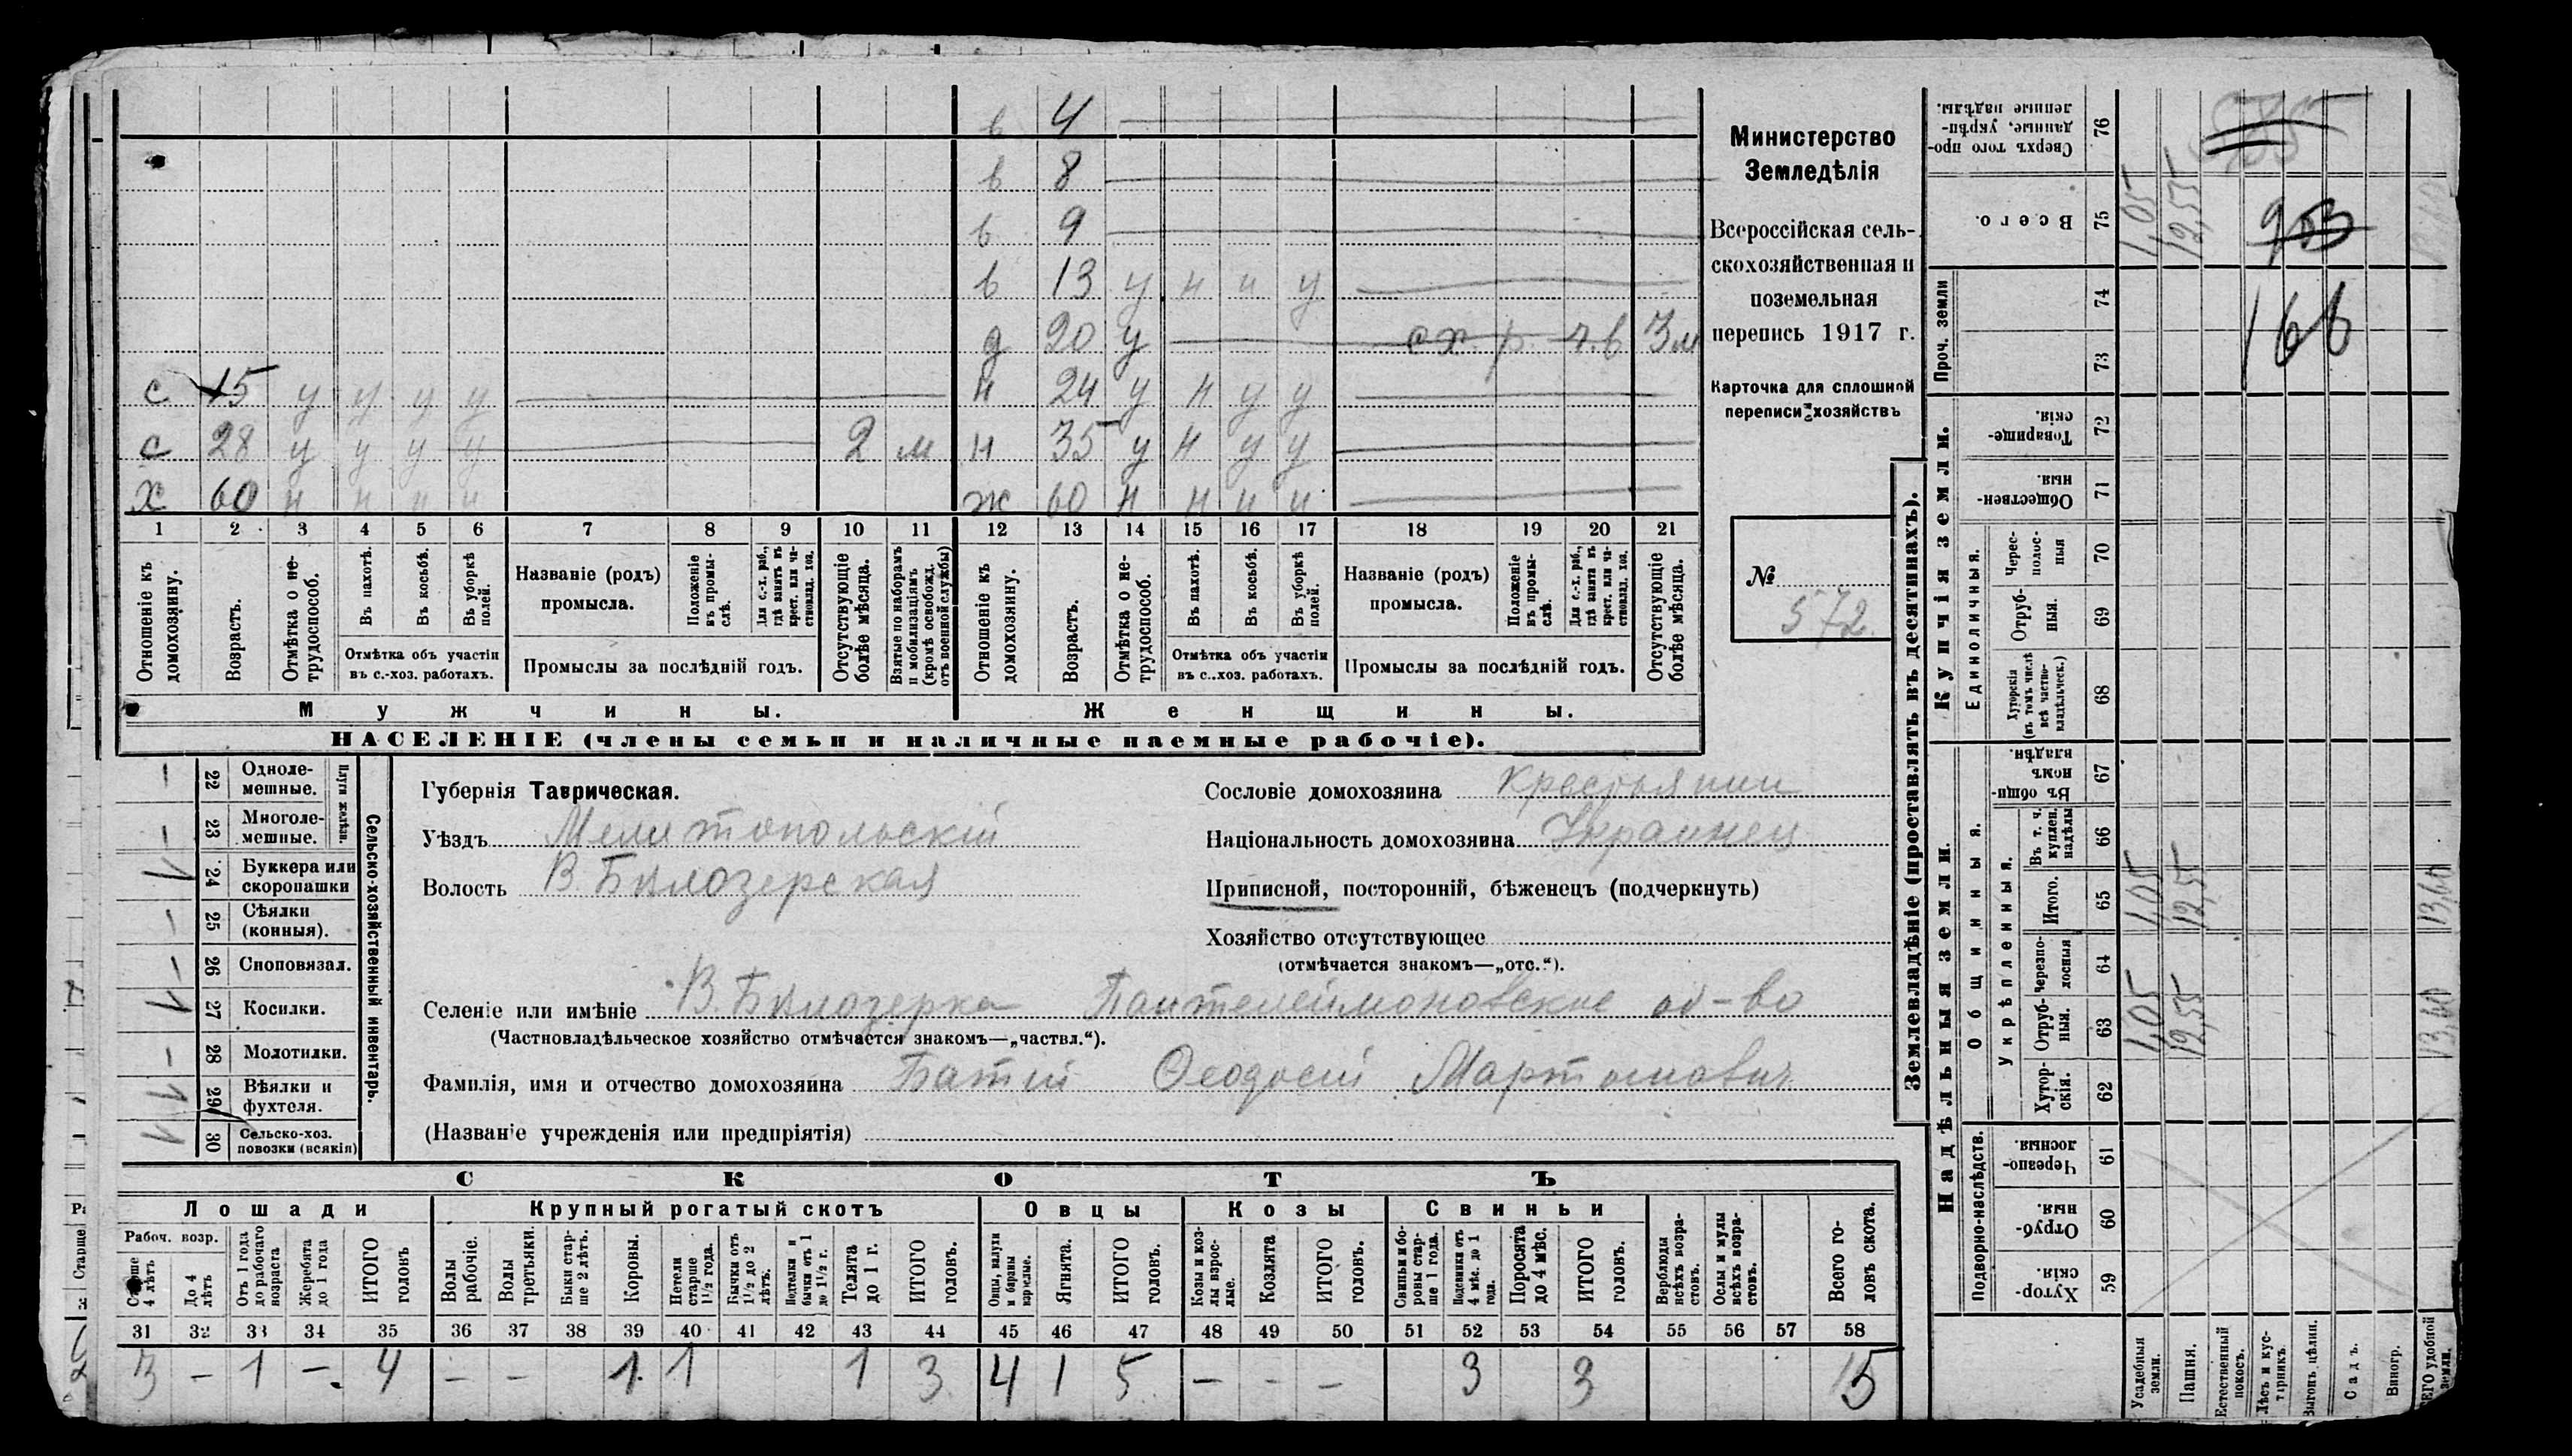 в 4
в 8
в 9
в 13 у н н у
д 20 у сх р. ч.в 3 м
с 15 у у у у н 24 у н у у
с 28 у у у у 2 м н 35 у н у у
х 60 н н н н ж 60 н н н н
1 2 3 4 5 6 7 8 9 10 11 12 13 14 15 16 17 18 19 20 21
Отношеніе къ домохозяину.
Возрастъ.
Отмѣтка о нетрудоспособ.
Въ пахотѣ.
Въ косьбѣ.
Въ уборкѣ полей.
Отмѣтка объ участіи въ с.-хоз. работахъ.
Названіе (родъ) промысла.
Положеніе въ промыслѣ.
Для с.-х. раб., гдѣ занятъ въ крест. или частновлад. хоз.
Промыслы за послѣдній годъ.
Отсутствующіе болѣе мѣсяца.
Взятые по наборамъ и мобилизаціямъ (кромѣ освобожд. отъ военной службы)
Отношеніе къ домохозяину.
Возрастъ.
Отмѣтка о нетрудоспособ.
Въ пахотѣ.
Въ косьбѣ.
Въ уборкѣ полей.
Отмѣтка объ участіи въ с..хоз. работахъ.
Названіе (родъ) промысла.
Положеніе въ промыслѣ.
Для с.-х. раб., гдѣ занята въ крест. или частновлад. хоз.
Промыслы за послѣдній годъ.
Отсутствующіе болѣе мѣсяца.
Мужчины. Женщины.
НАСЕЛЕНІЕ (члены семьи и наличные наемные рабочіе).
Министерство
Земледѣлія
Всероссійская сель-
скохозяйственная и
поземельная
перепись 1917 г.
Карточка для сплошной
переписи хозяйствъ
№
572
22 Одноле-
мешные.
23 Многоле-
мешные.
Плуги желѣзн.
24 Буккера или
скоропашки
25 Сѣялки
(конныя).
26 Сноповязал.
27 Косилки.
28 Молотилки.
29 Вѣялки и
фухтеля.
30 Сельско-хоз.
повозки (всякія)
Сельско-хозяйственный инвентарь.
Губернія Таврическая.
Уѣздъ Мелитопольскій
Волость В. Бѣлозерская
Сословіе домохозяина крестьянин
Національность домохозяина Украинец
Приписной, посторонній, бѣженецъ (подчеркнуть)
Хозяйство отсутствующее
(отмѣчается знакомъ—„отс.“).
Селеніе или имѣніе В. Бѣлозерка Пантелеймоновское об-во
(Частновладѣльческое хозяйство отмѣчается знакомъ—„частвл.“).
Фамилія, имя и отчество домохозяина Батій Феодосій Мартынович
(Названіе учрежденія или предпріятія)
СКОТЪ
Лошади Крупный рогатый скотъ Овцы Козы Свиньи
Рабоч. возр.
Старше 4 лѣтъ
До 4 лѣтъ
Отъ 1 года до рабочаго возраста
Жеребята до 1 года
ИТОГО головъ
Волы рабочіе.
Волы третьяки.
Быки старше 2 лѣтъ.
Коровы.
Нетели старше 1½ года.
Бычки отъ 1½ до 2 лѣтъ.
Подтелки и бычки отъ 1 до 1½ г.
Телята до 1 г.
ИТОГО головъ.
Овцы, валухи и бараны взрослые.
Ягнята.
ИТОГО головъ.
Козы и козлы взрослые.
Козлята
ИТОГО головъ.
Свиньи и боровы старше 1 года.
Подсвинки отъ 4 мѣс. до 1 года.
Поросята до 4 мѣс.
ИТОГО головъ.
Верблюды всѣхъ возрастовъ.
Ослы и мулы всѣхъ возрастовъ.
Всего головъ скота.
31 32 33 34 35 36 37 38 39 40 41 42 43 44 45 46 47 48 49 50 51 52 53 54 55 56 57 58
3 – 1 – 4 – – 1 1 1 3 4 1 5 – – – 3 3 15
Землевладѣніе (проставлять въ десятинахъ).
Купчія земли.
Надѣльныя земли.
Сверхъ того проданные, укрѣпленные надѣлы. 76
Всего. 75
Проч. земли 74 73
Товарищескія. 72
Общественныя. 71
Единоличныя.
Чересполосныя 70
Отрубныя. 69
Хуторскія (въ томъ числѣ всѣ частновладѣльческ.) 68
Общинныя.
Въ общинномъ владѣн. 67
Укрѣпленныя.
Въ т. ч. куплен. надѣлы 66
Итого. 65
Черезполосныя 64
Отрубныя. 63
Хуторскія. 62
Подворно-наслѣдств.
Черезполосныя. 61
Отрубныя 60
Хуторскія. 59
Усадебныя земли.
Пашня.
Естественный покосъ.
Лѣсъ и кустарникъ.
Выгонъ, цѣлин.
Садъ.
Виногр.
ВСЕГО удобной земли.
1,05 12,55
1,05 12,55 13,60
1,05 12,55 13,60
166
Старше